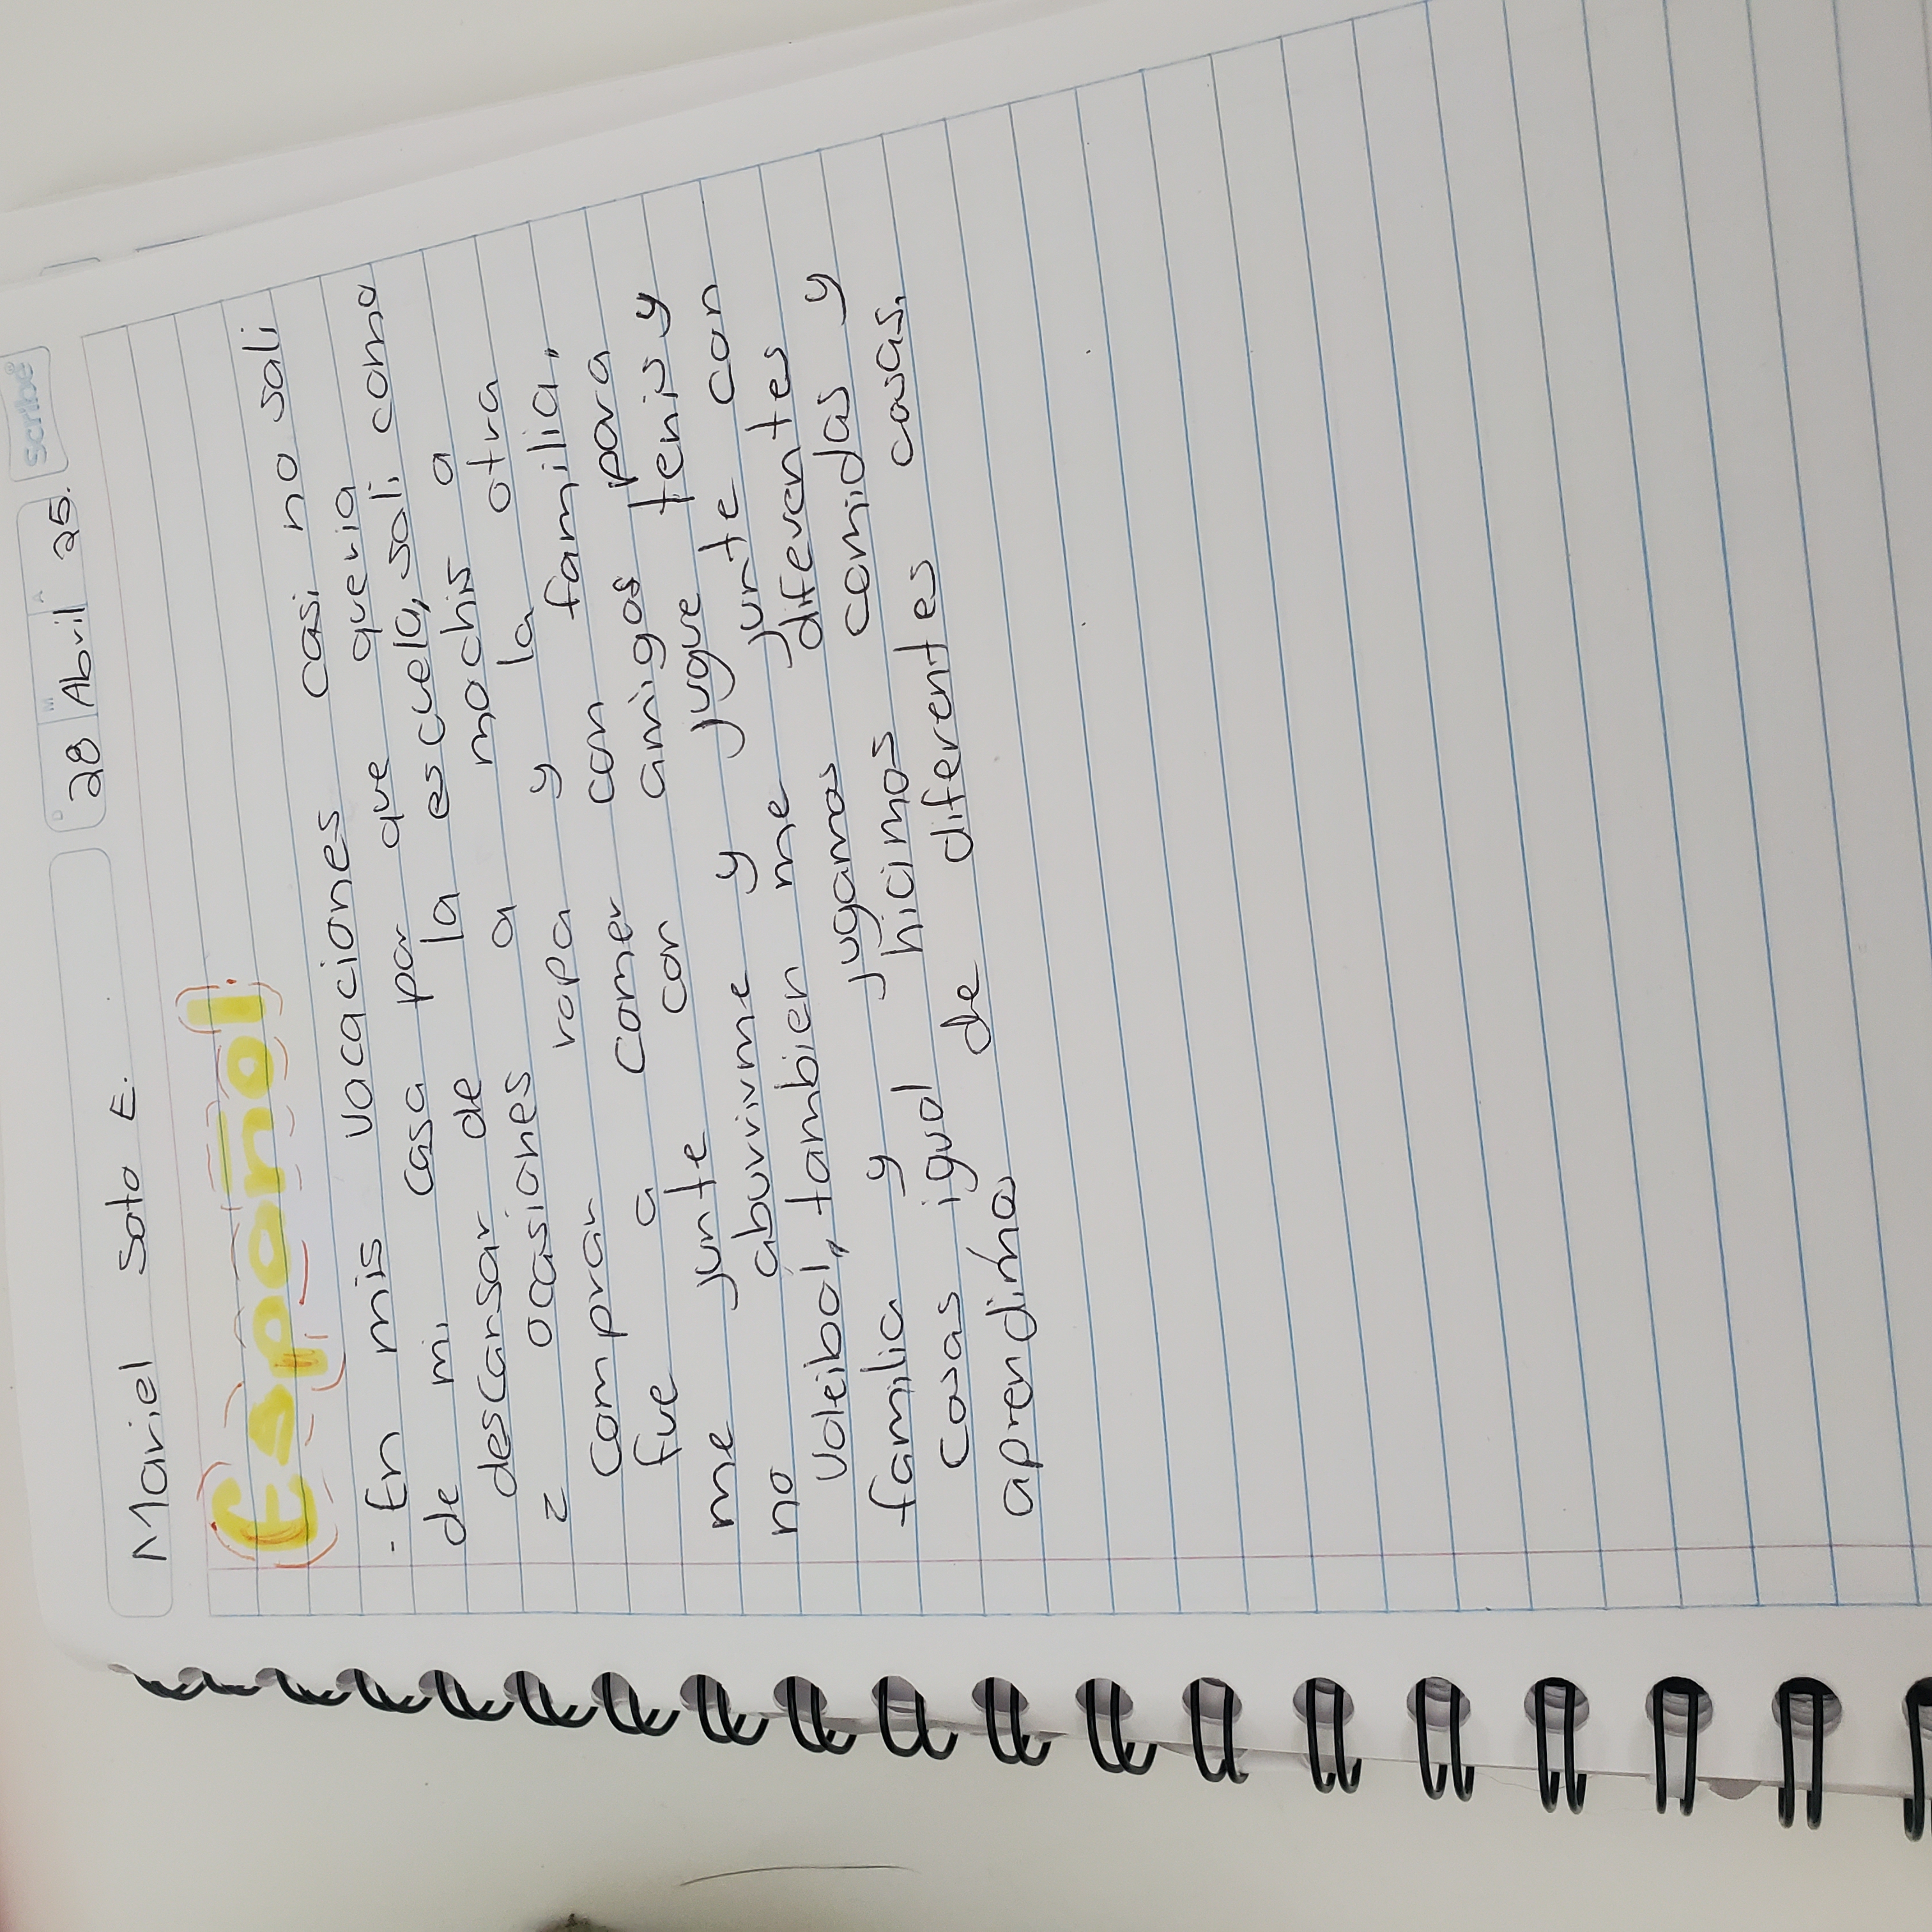 Scribe
D M A
Mariel Soto E. 28 Abril 25.
Español.
- En mis vacaciones casi no sali
de mi casa por que queria
descansar de la escuela, sali como
2 ocasiones a mochis a
comprar ropa y la otra
fue a comer con familia,
me junte con amigos para
no aburrirme y jugue tenis y
voleibol, tambien me junte con
familia y jugamos diferentes
cosas igual hicimos comidas y
aprendimos de diferentes cosas.